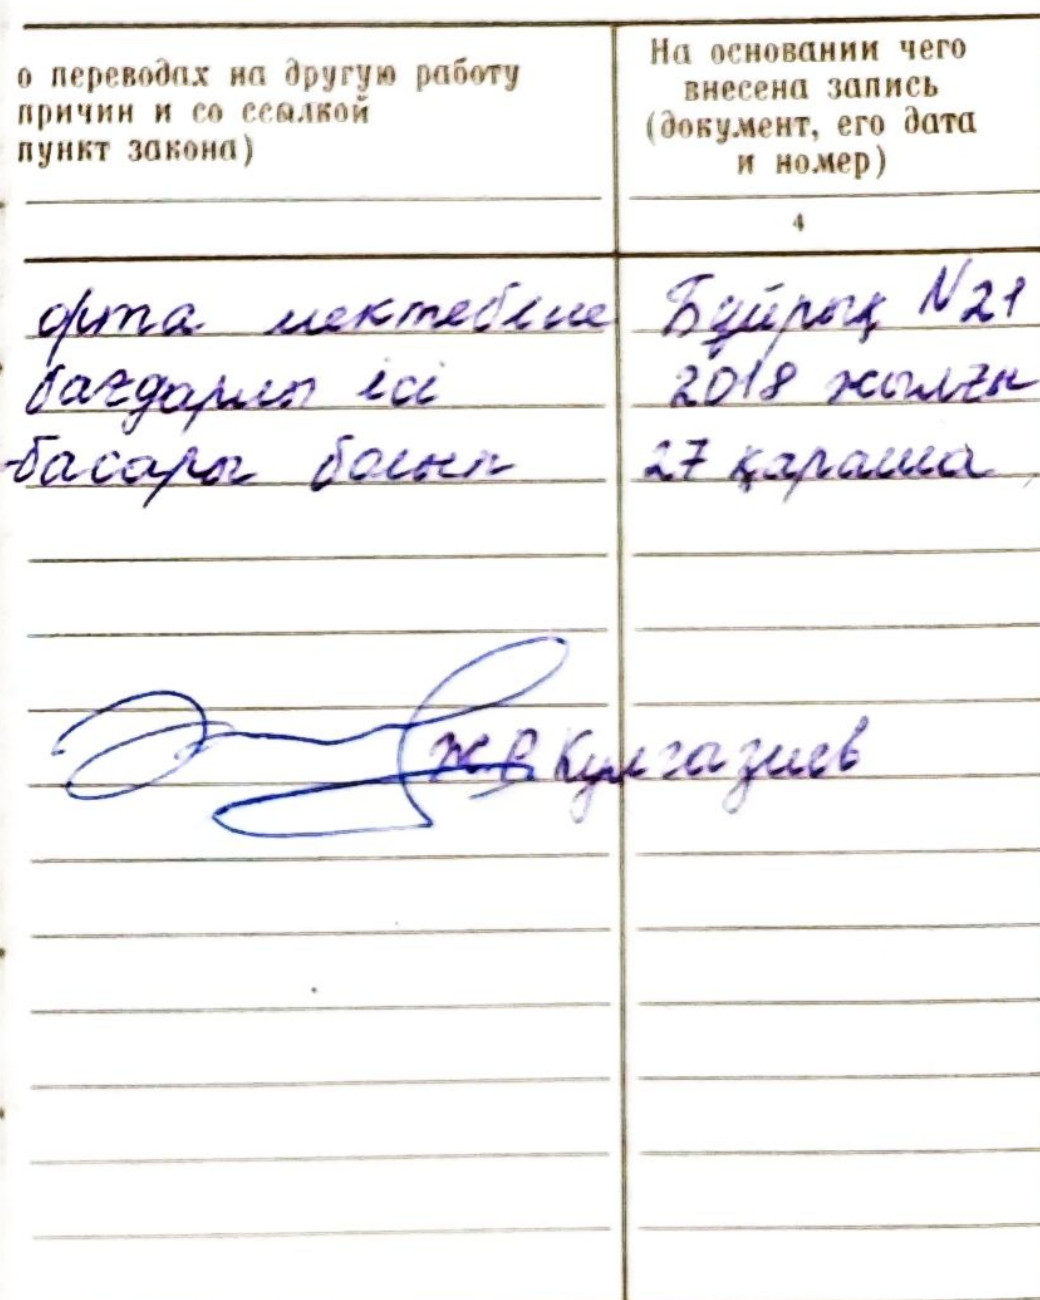 о переводах на другую работу
причин и со ссылкой
пункт закона)
На основании чего
внесена запись
(документ, его дата
и номер)
4
орта мектебіне
бағдарлы ісі
басары болып
Бұйрық N21
2018 жылғы
27 қараша
Ж.В. Кулгазиев